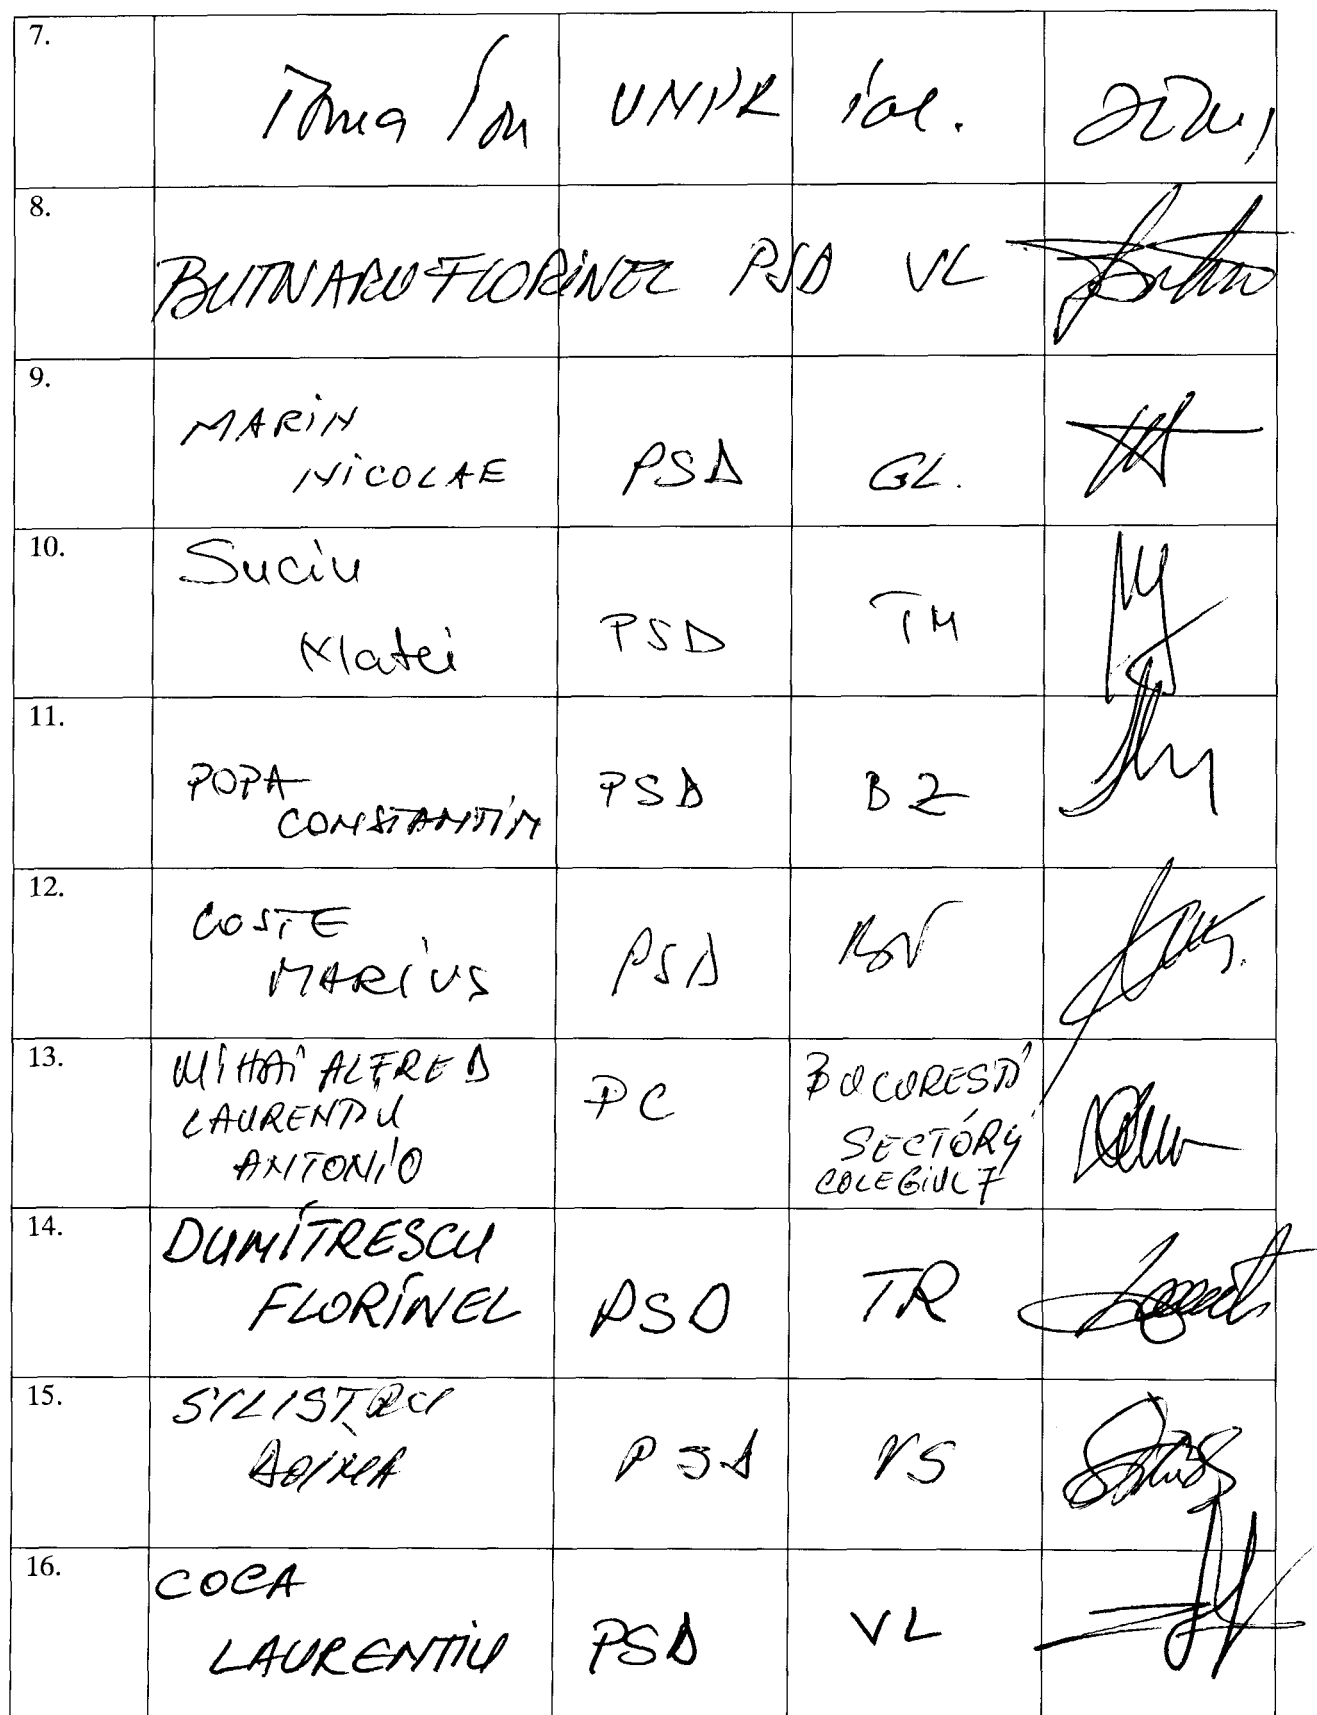 7.
Toma Ion UNPR
8.
BUTNARU FLORINEL PSD VL
9.
MARIN
NICOLAE PSD GL.
10.
Suciu
Matei PSD TM
11.
POPA
CONSTANTIN PSD BZ
12.
COSTE
MARIUS PSD BV
13.
MIHAI ALFRED
LAURENTIU
ANTONIO
PC
BUCURESTI
SECTOR 4
COLEGIUL 7
14.
DUMITRESCU
FLORINEL PSD TR
15.
SILISTRU
DOINA PSD VS
16.
COCA
LAURENTIU PSD VL